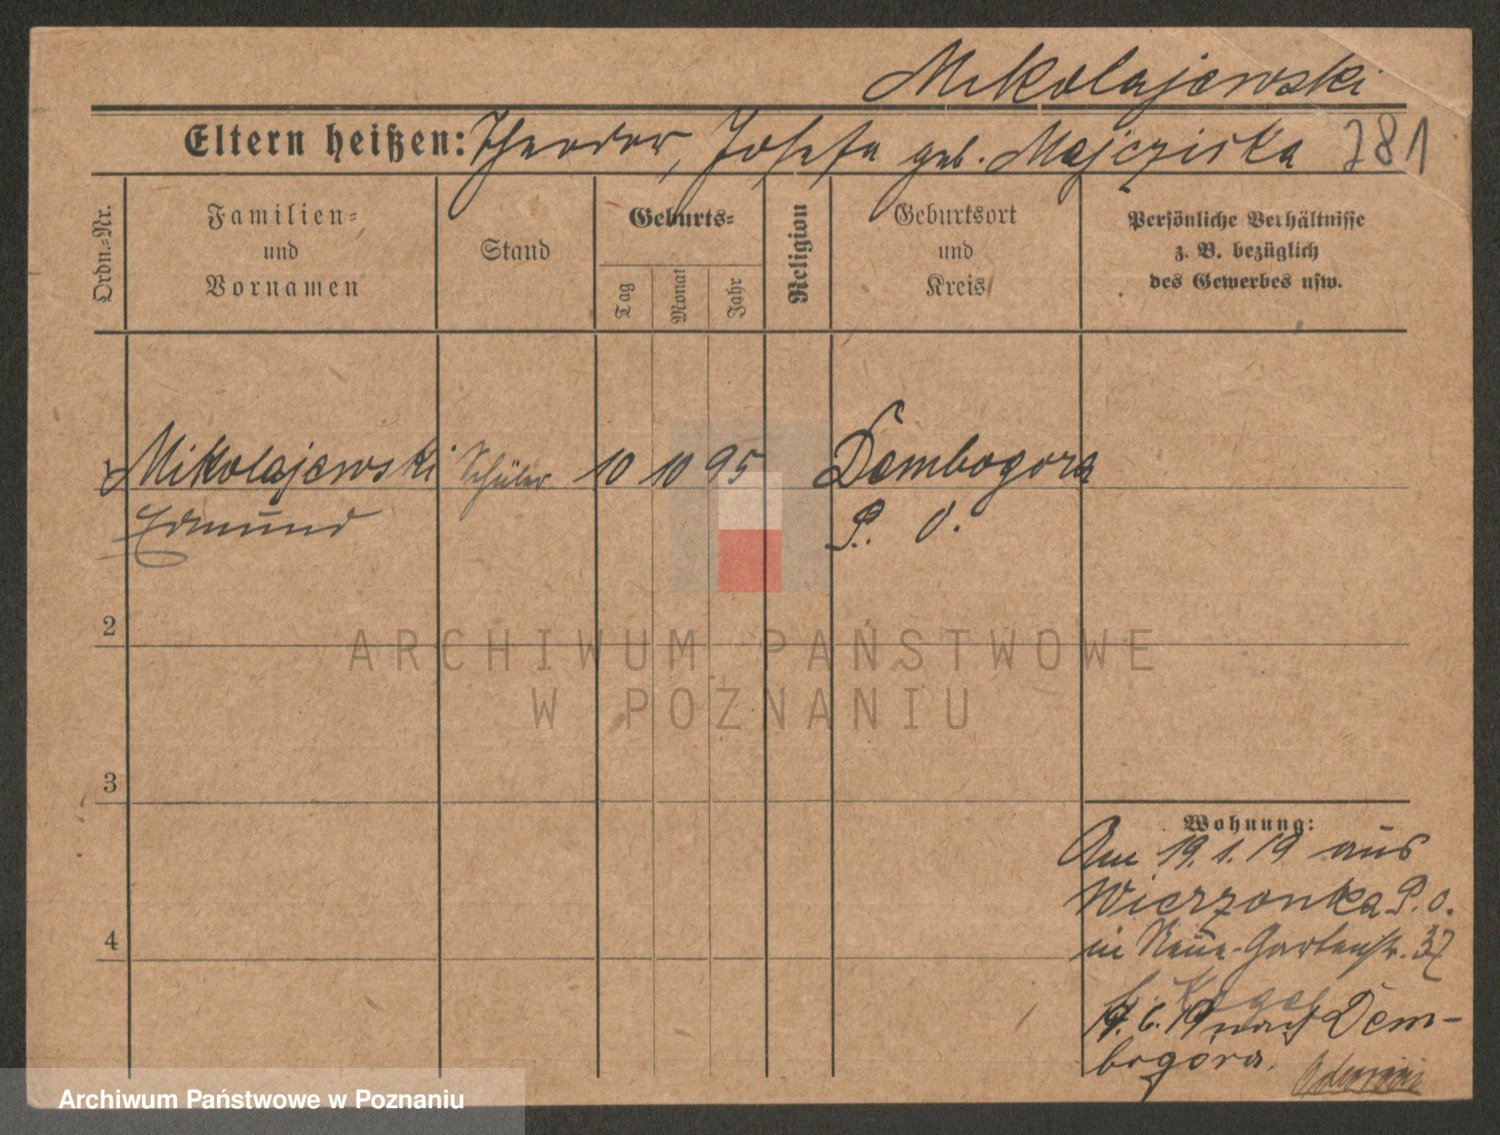 Mikolajewski
Eltern heißen: Theodor, Josefa geb. Majcziska 281
Ordn.-Nr.
Familien-
und
Vornamen
Stand
Geburts-
Tag
Monat
Jahr
Religion
Geburtsort
und
Kreis
Persönliche Verhältnisse
z. B. bezüglich
des Gewerbes usw.
1 Mikolajewski Schüler 10 10 95 Dembogora
Edmund P. O.
2
3
4
Wohnung:
Am 19.1.19 aus
Wierzonka P. O.
in Neue-Gartenstr. 37
b. Kogel
19.6.19 nach Dem-
bogora.
ARCHIWUM PAŃSTWOWE
W POZNANIU
Archiwum Państwowe w Poznaniu